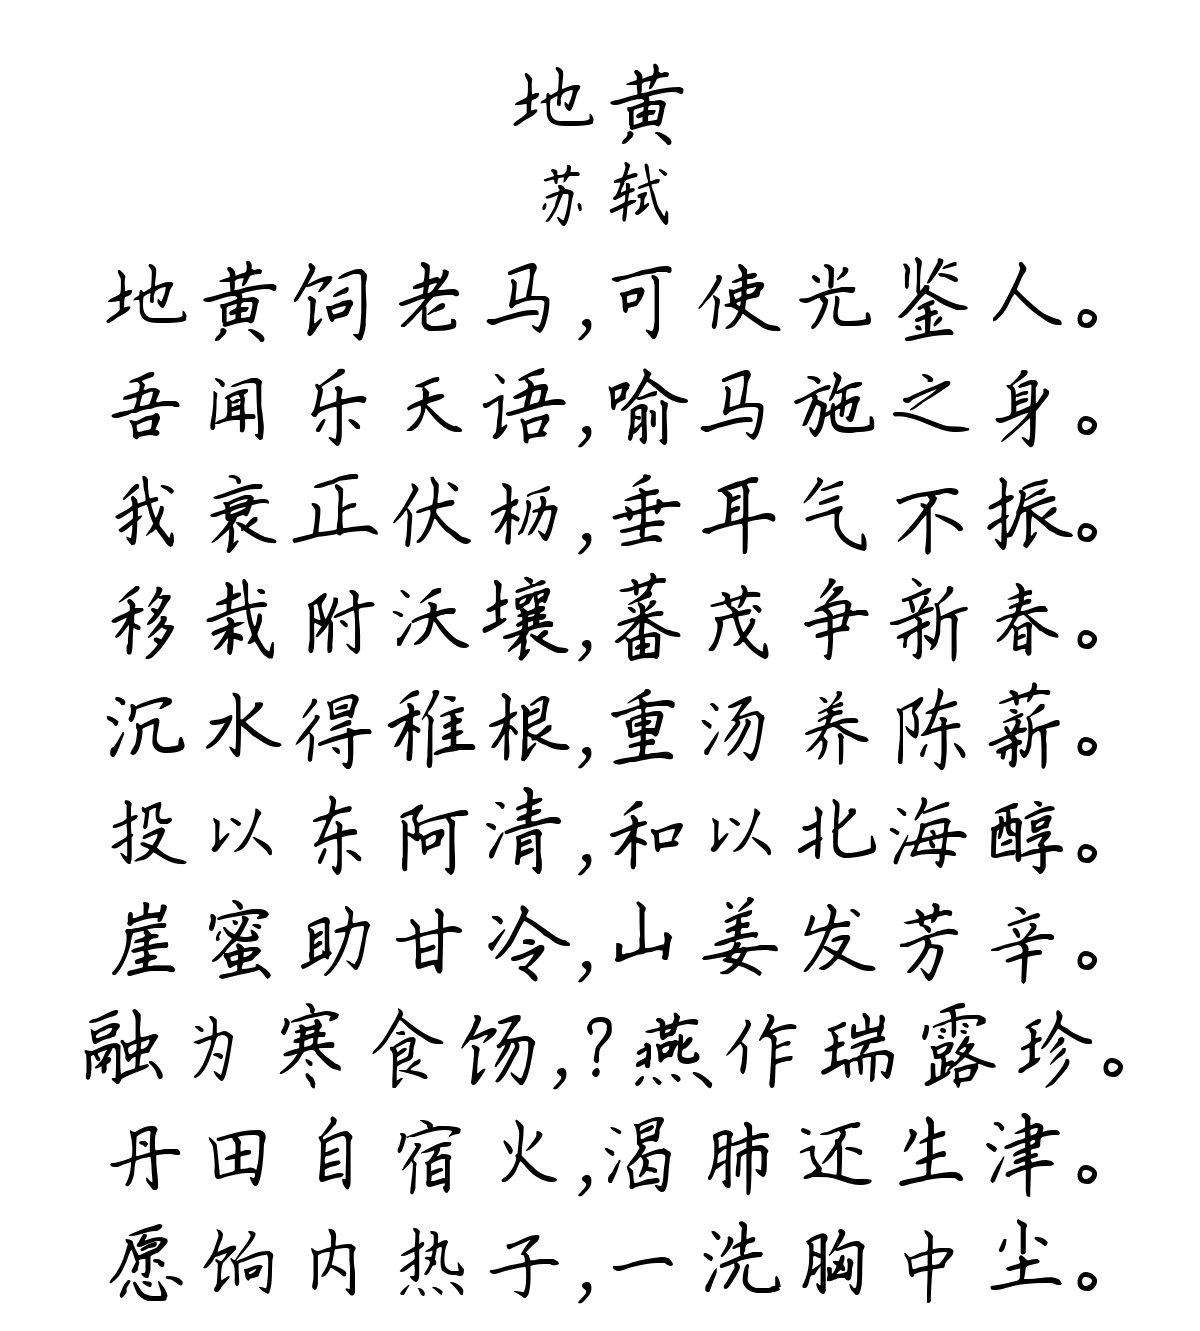 地黄
苏轼
地黄饲老马,可使光鉴人。
吾闻乐天语,喻马施之身。
我衰正伏枥,垂耳气不振。
移栽附沃壤,蕃茂争新春。
沉水得稚根,重汤养陈薪。
投以东阿清,和以北海醇。
崖蜜助甘冷,山姜发芳辛。
融为寒食饧,?燕作瑞露珍。
丹田自宿火,渴肺还生津。
愿饷内热子,一洗胸中尘。